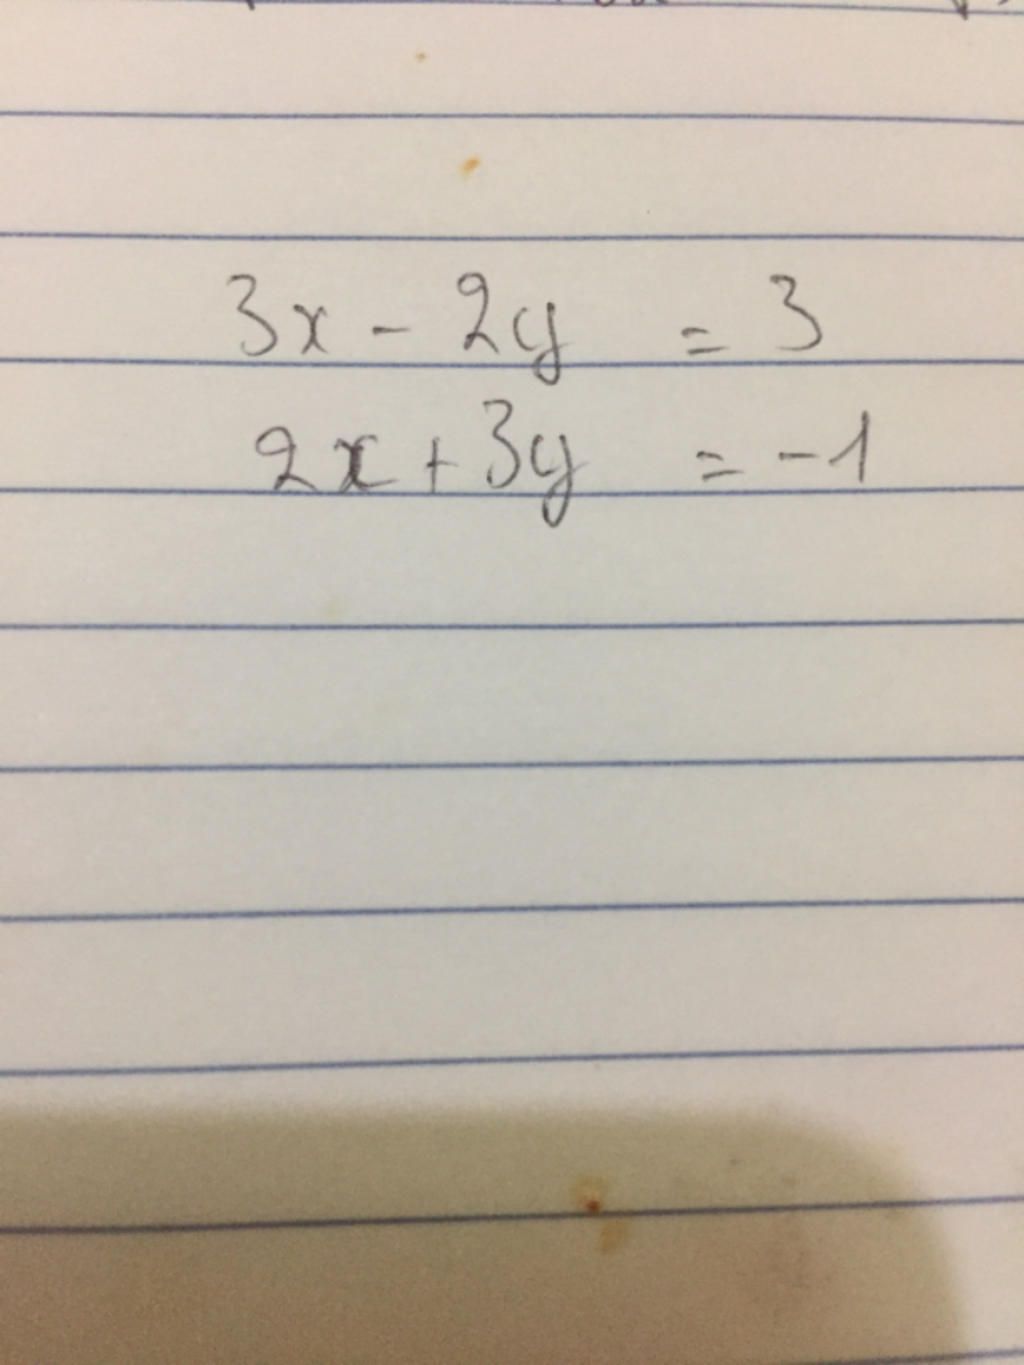 3x - 2y = 3
2x + 3y = -1